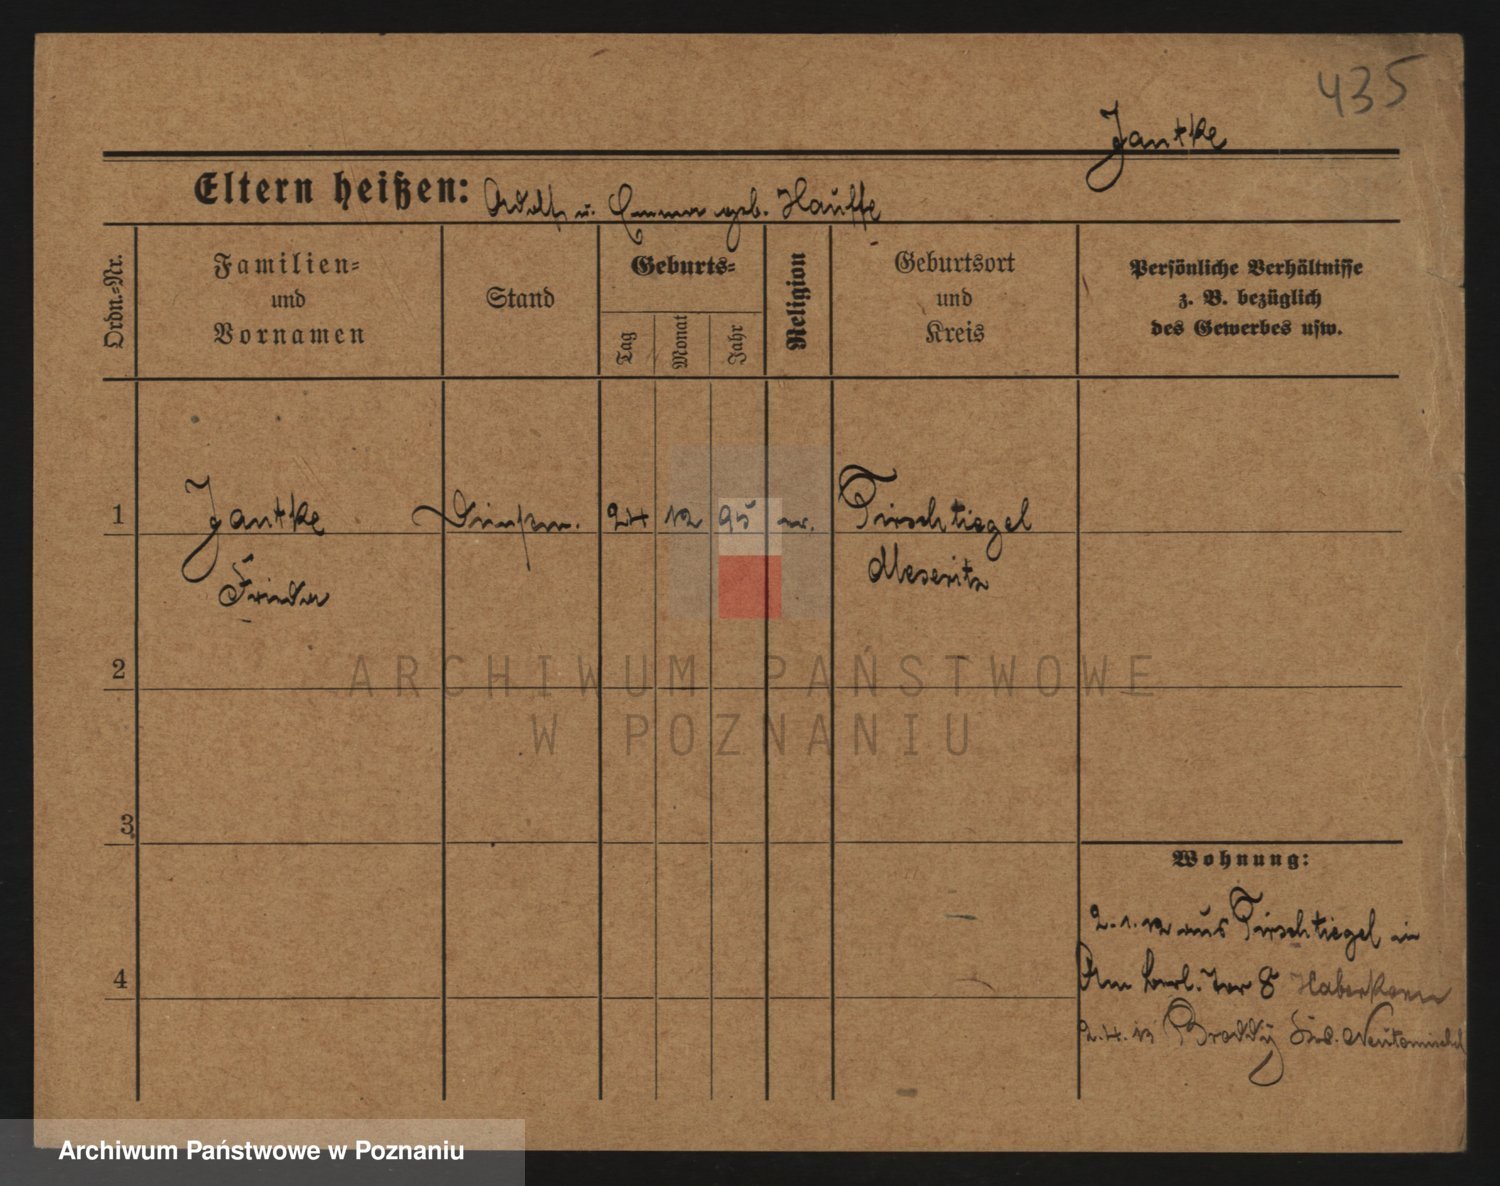 435
Jantke
Eltern heißen: Adolf u. Emma geb. Hauffe
Ordn.-Nr.
Familien-
und
Vornamen
Stand
Geburts-
Tag
Monat
Jahr
Religion
Geburtsort
und
Kreis
Persönliche Verhältnisse
z. B. bezüglich
des Gewerbes usw.
1 Jantke 24 12 95 ev. Tirschtiegel
Frieda Meseritz
2
ARCHIWUM PAŃSTWOWE
W POZNANIU
3
Wohnung:
2.1.12 aus Tirschtiegel in
Am Berl. Tor 8 Haberkorn
4
2.4.13 Kris. Neutomischel
Archiwum Państwowe w Poznaniu